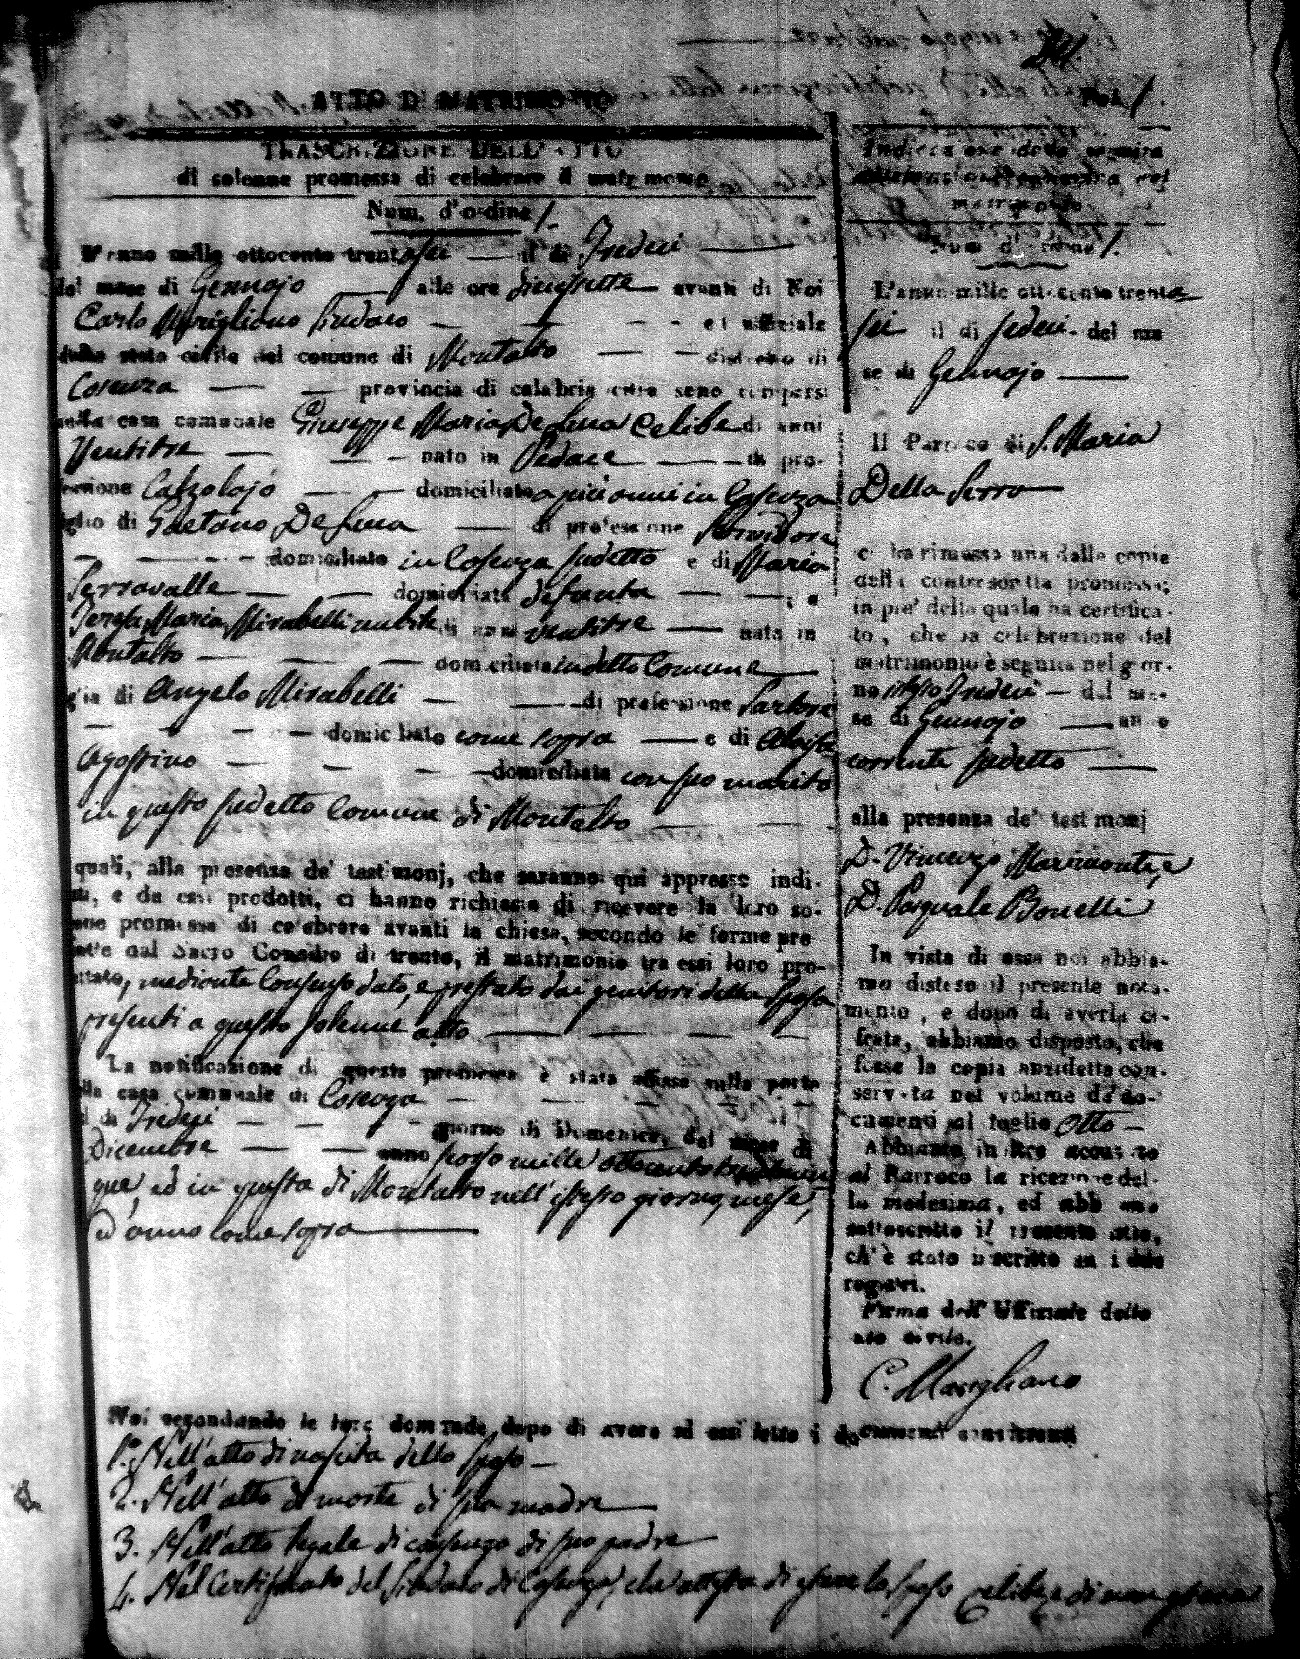 ATTO D'MATRIMONIO
TRASCRIZIONE DELL'ATTO
di solenne promessa di celebrare il matrimonio
Num. d'ordine 1.
L'anno mille ottocento trentasei il dì Tredeci
del mese di Gennajo alle ore diecisette avanti di Noi
Carlo Marigliano Sindaco ed uffiziale
dello stato civile del comune di Montalto distretto di
Cosenza provincia di calabria citra sono comparsi
nella casa comunale Giuseppe Maria De Luca Celibe di anni
Ventitre nato in Pedace di pro-
fessione Calzolajo domiciliato a più anni in Cosenza
figlio di Gaetano De Luca di professione
domiciliato in Cosenza sudetto e di Maria
Serravalle domiciliata defunta ; e
Teresa Maria Mirabelli nubile di anni ventitre nata in
Montalto domiciliata in detto Comune
figlia di Angelo Mirabelli di professione Sartore
domiciliato come sopra e di Aloisa
Agostino domiciliata con suo marito
in questo sudetto Comune di Montalto
quali, alla presenza de' testimonj, che saranno qui appresso indi-
ti, e da essi prodotti, ci hanno richiesto di ricevere la loro so-
lenne promessa di celebrare avanti la chiesa, secondo le forme pre
scritte dal Sacro Concilio di trento, il matrimonio tra essi loro pro-
gettato, mediante Consenso dato, e prestato dai genitori della Sposa
presenti a questo solenne atto
La notificazione di questa promessa è stata affissa sulla porta
della casa comunale di Cosenza
il dì Tredeci giorno di Domenica, del mese di
Dicembre anno scorso mille ottocento trentacin
que, ed in questa di Montalto nell'istesso giorno, mese,
ed anno come sopra
Noi secondando le loro domande dopo di avere ad essi letto i documenti consistenti
1.° Nell'atto di nascita dello Sposo
2. Nell'atto di morte di sua madre
3. Nell'atto legale di consenso di suo padre
4. Nel Certificato del Sindaco di Cosenza, che attesta di essere lo Sposo celibe, e di non
Num. 1.
Indicazione della seguita
celebrazione del
matrimonio
Num d'ordine 1.
L'anno mille ottocento trenta
sei il di sedeci del me
se di Gennajo
Il Parroco di S. Maria
Della Serra
ci ha rimessa una delle copie
della controscritta promessa;
in pie' della quale ha certifica-
to, che la celebrazione del
matrimonio è seguita nel gior-
no istesso Tredeci del me-
se di Gennajo anno
corrente sudetto
alla presenza de' testimonj
D. Vincenzo Marimonte, e
D. Pasquale Bonelli
In vista di essa noi abbia-
mo disteso il presente nota-
mento, e dopo di averla ci-
frata, abbiamo disposto, che
fosse la copia anzidetta con-
servata nel volume de' do-
cumenti al foglio otto
Abbiamo inoltre accusato
al Parroco la ricezione del-
la medesima, ed abbiamo
sottoscritto il presente atto,
ch'è stato inscritto su i due
registri.
Firma dell'Uffiziale dello
stato civile.
C. Marigliano